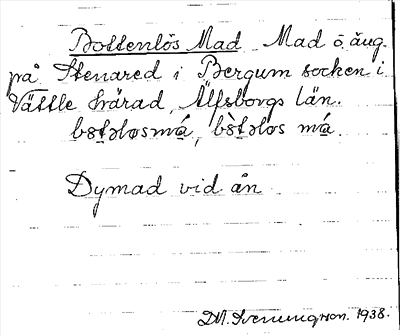 Bottenlös Mad Mad o äng
på Stenared i Bergum socken i
Vättle härad, Älfsborgs län.
Dymad vid ån
1938.